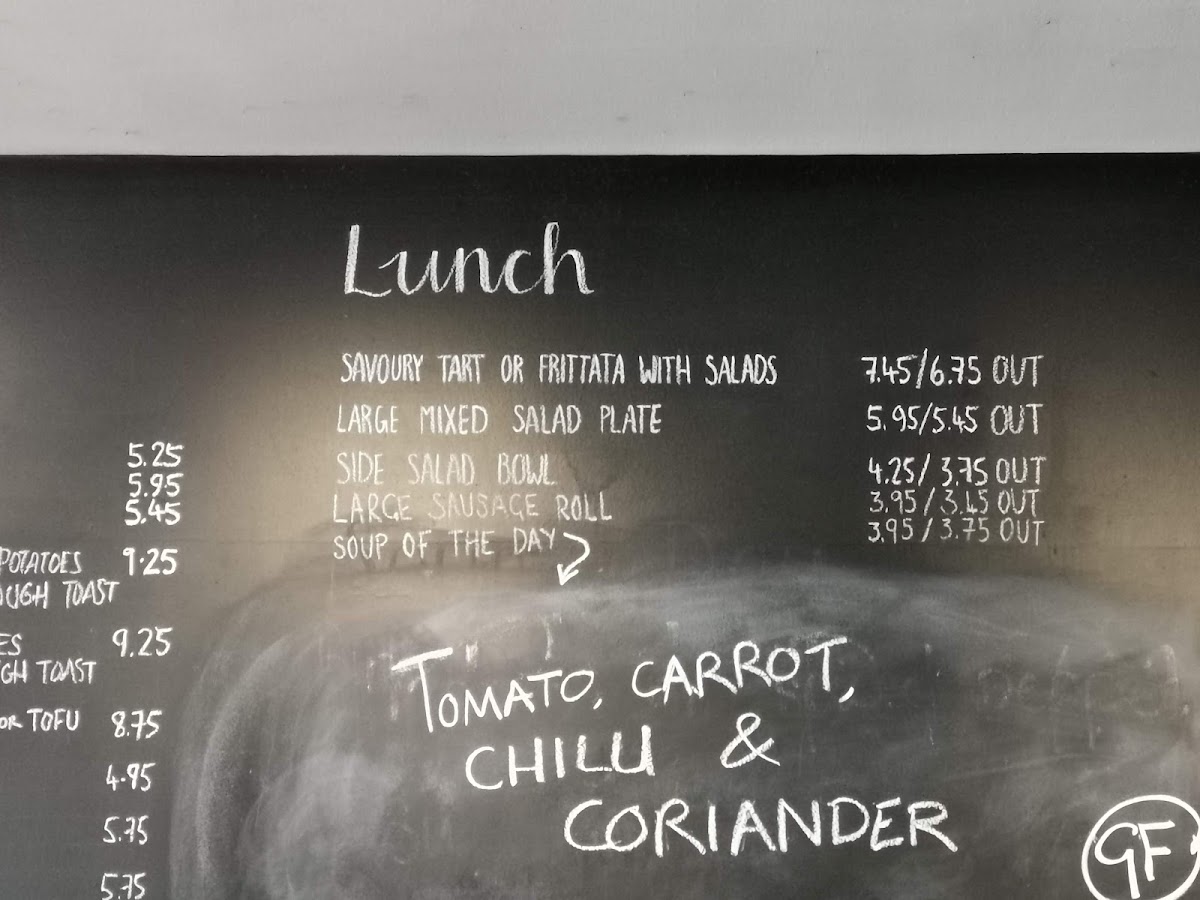 Lunch
SAVOURY TART OR FRITTATA WITH SALADS 7.45/6.75 OUT
LARGE MIXED SALAD PLATE 5.95/5.45 OUT
SIDE SALAD BOWL 4.25/3.75 OUT
LARGE SAUSAGE ROLL 3.95/3.45 OUT
SOUP OF THE DAY 3.95/3.75 OUT
TOMATO, CARROT,
CHILLI &
CORIANDER
GF
5.25
5.95
5.45
POTATOES 9.25
TOAST
9.25
TOAST
OR TOFU 8.75
4.95
5.75
5.75